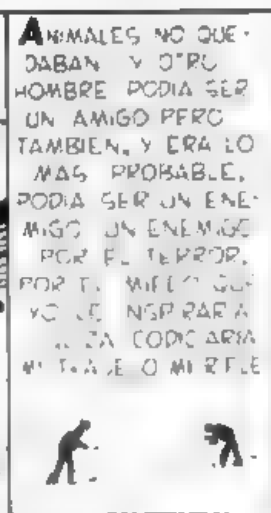 ANIMALES NO QUE-
DABAN Y OTRO
HOMBRE PODIA SER
UN AMIGO PERO
TAMBIEN, Y ERA LO
MAS PROBABLE,
PODIA SER UN ENE-
MIGO UN ENEMIGO
POR EL TERROR,
POR EL MIEDO QUE
YO LE INSPIRARA
CODICIARIA
MI TRAJE O MI RIFLE